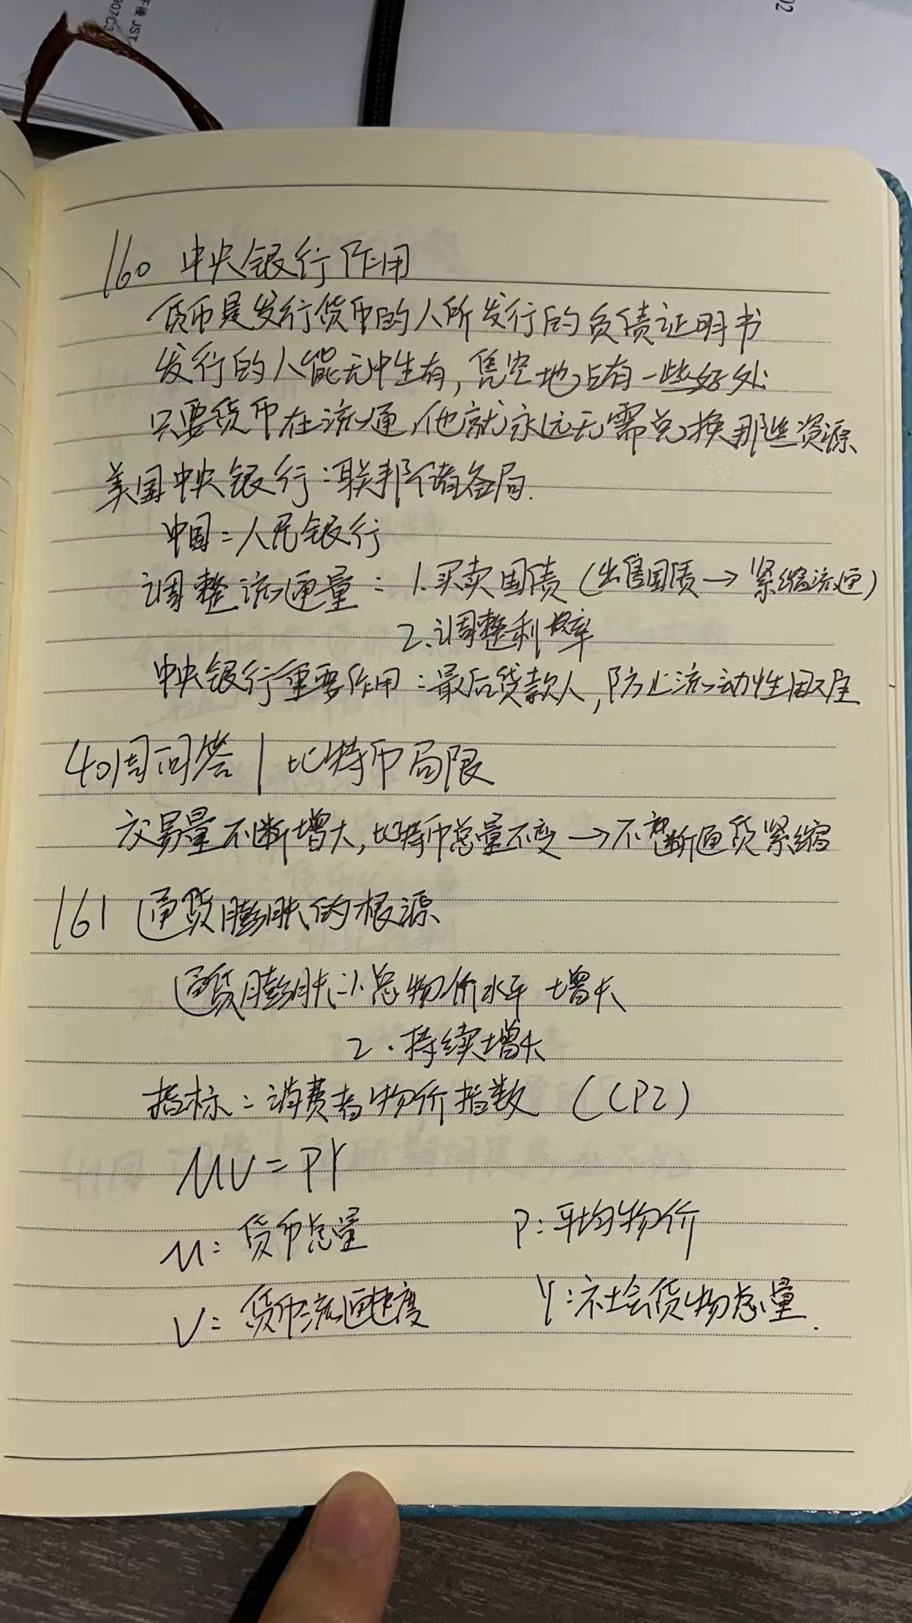 160 中央银行作用
货币是发行货币的人所发行的负债证明书
发行的人能无中生有,凭空地占有一些好处
只要货币在流通,他就永远无需兑换那些资源
美国中央银行:联邦储备局.
中国:人民银行
调整流通量:1.买卖国债(出售国债→紧缩流通)
2.调整利率
中央银行重要作用:最后贷款人,防止流动性困难
40周问答|比特币局限
交易量不断增大,比特币总量不变→不断通货紧缩
161 通货膨胀的根源
通货膨胀:1.总物价水平增长
2.持续增长
指标:消费者物价指数(CPI)
MV=PY
M:货币总量 P:平均物价
V:货币流通速度 Y:社会货物总量.